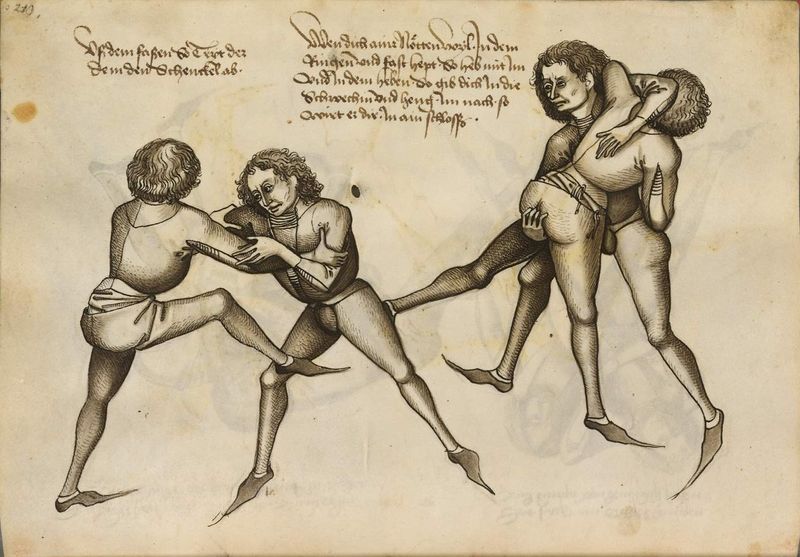 213.
Uß dem faßen So Tritt der
Dem den Schenckel ab.
Wen dich ainer Nötten wyl In dem
Ringen und fast hept So heb mit Im
Und In dem heben So gib dich In die
Schwechin und heng Im nach so
Wirt er dir In ain schloss